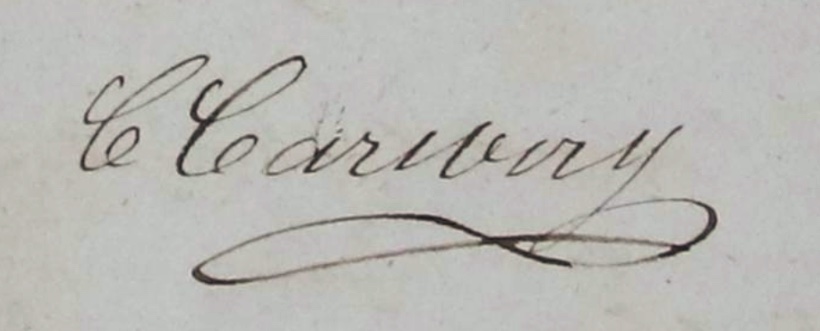 C Carwery